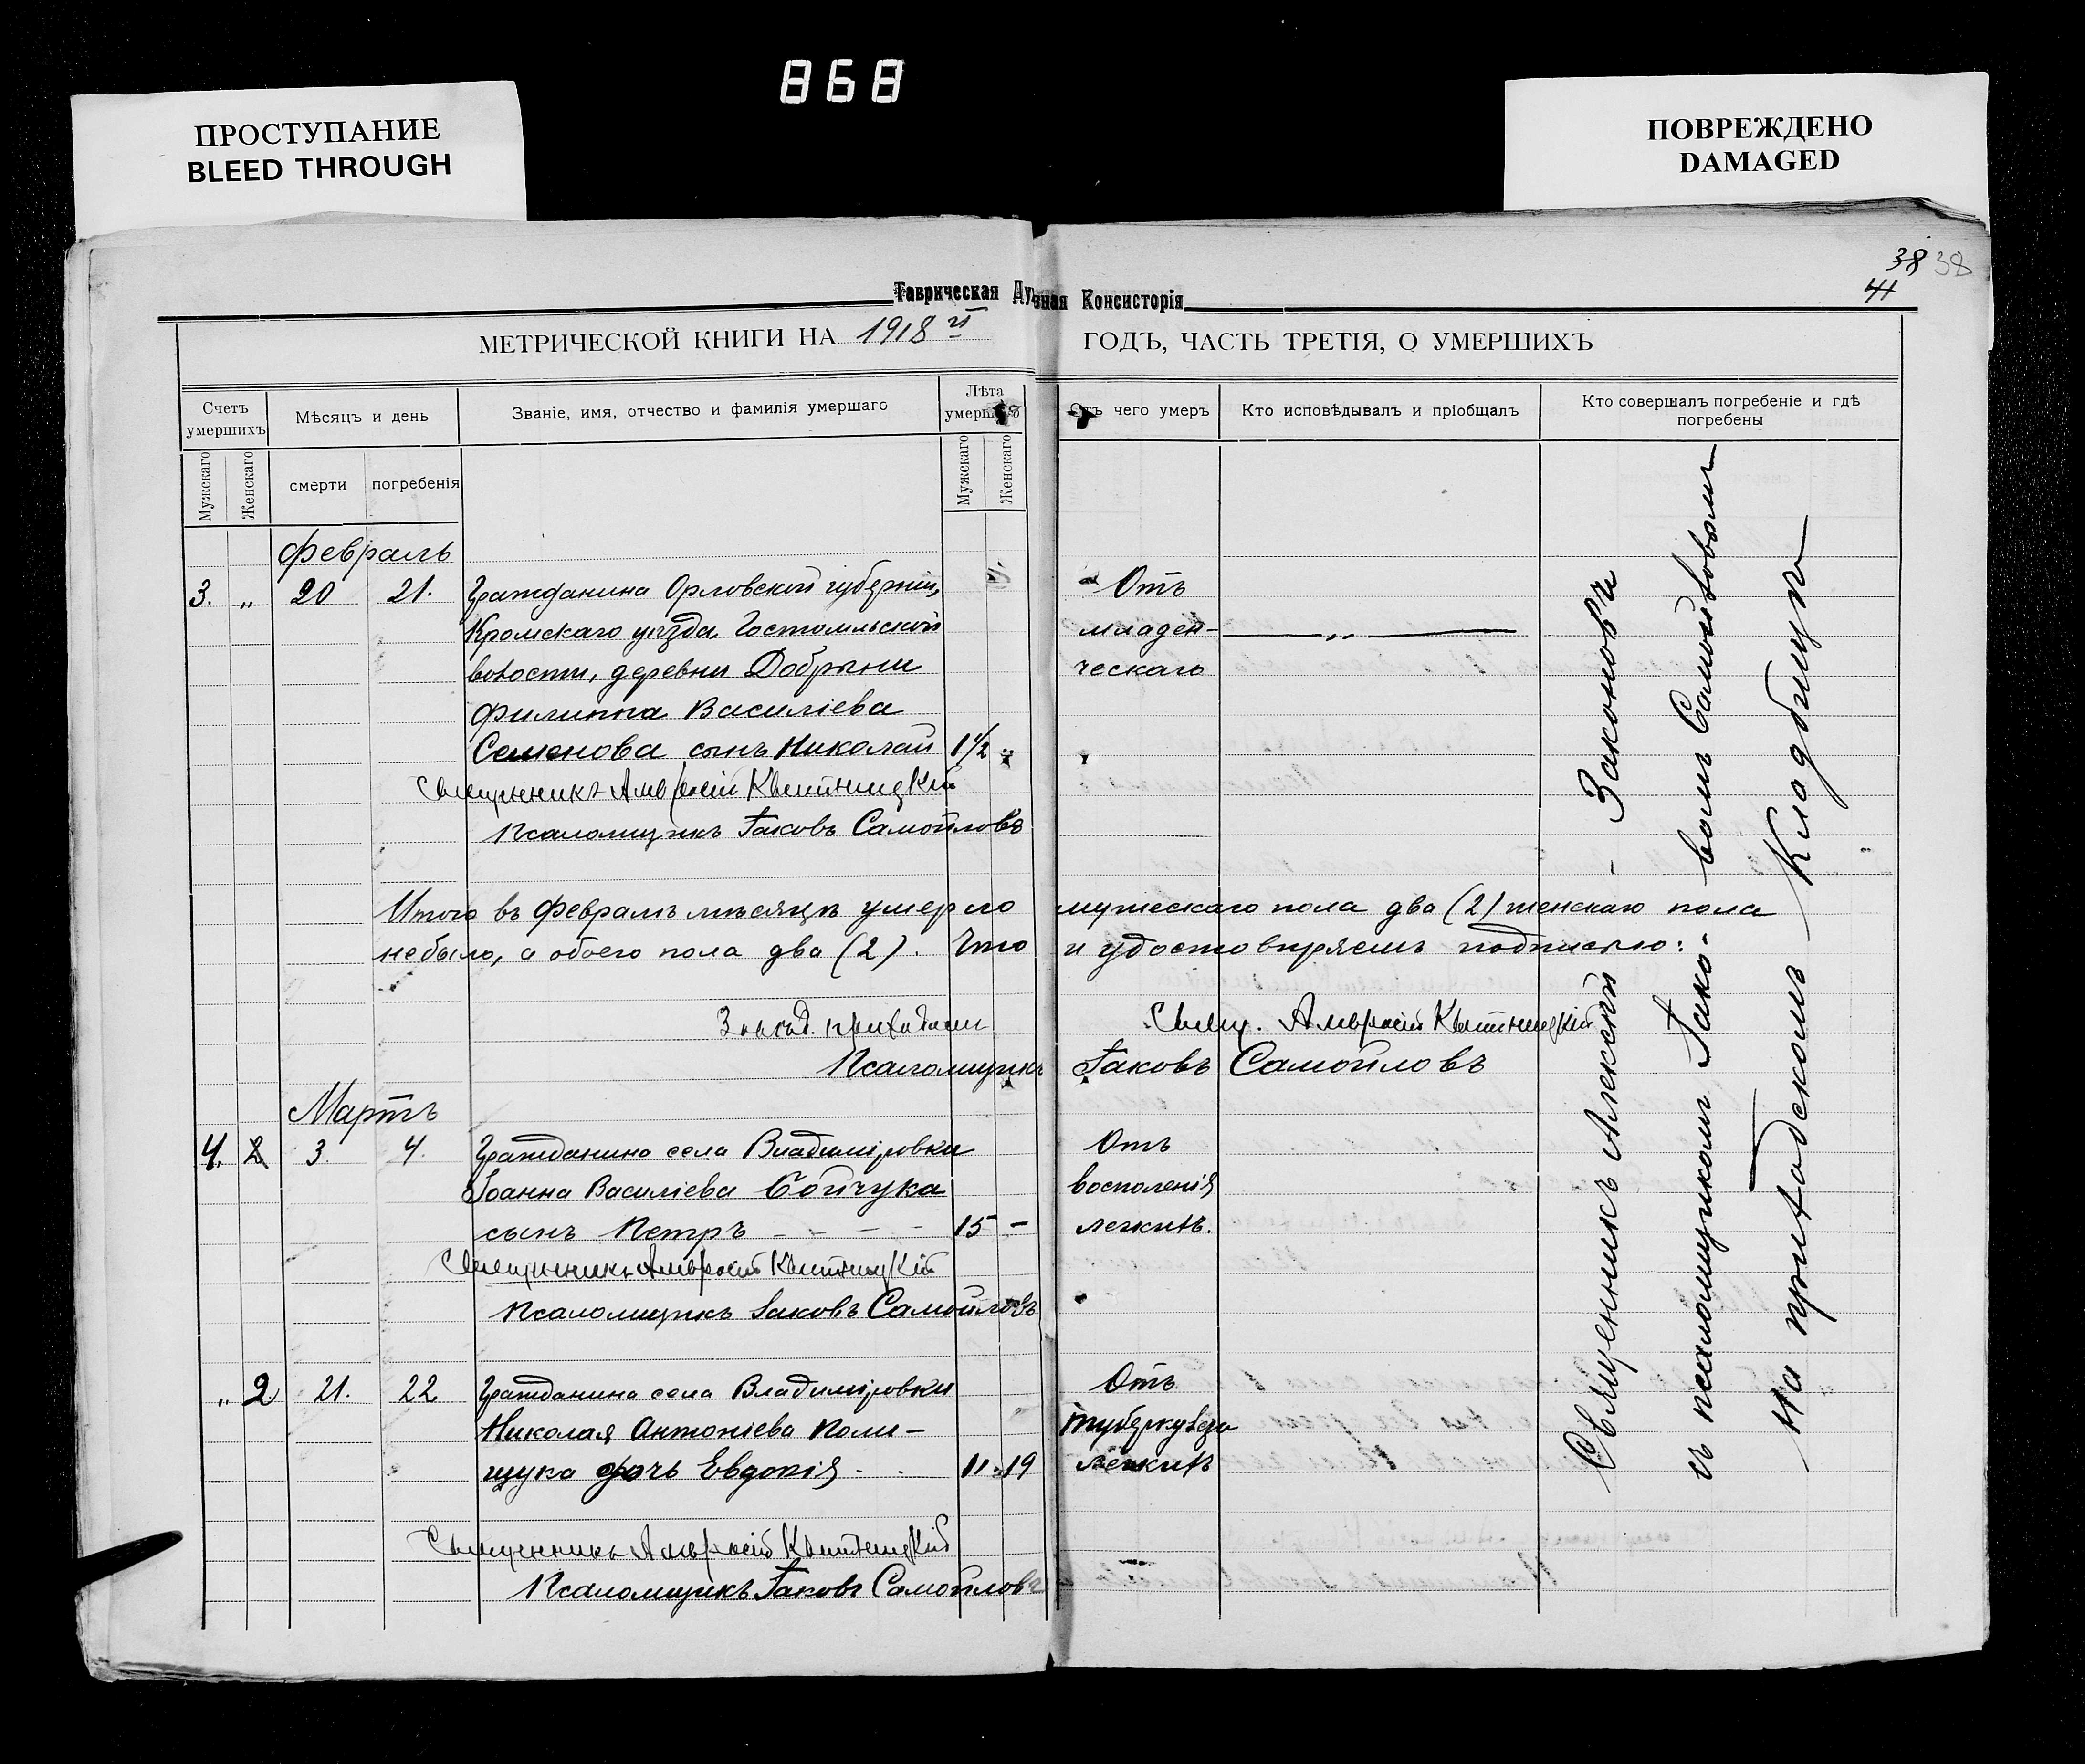 868
ПРОСТУПАНИЕ
BLEED THROUGH
ПОВРЕЖДЕНО
DAMAGED
38 38
41
Таврическая Духовная Консисторія
МЕТРИЧЕСКОЙ КНИГИ НА 1918 й ГОДЪ, ЧАСТЬ ТРЕТІЯ, О УМЕРШИХЪ
Счетъ умершихъ
Мѣсяцъ и день
Званіе, имя, отчество и фамилія умершаго
Лѣта умершихъ
Отъ чего умеръ
Кто исповѣдывалъ и пріобщалъ
Кто совершалъ погребеніе и гдѣ
погребены
Мужскаго
Женскаго
смерти
погребенія
Мужскаго
Женскаго
Февраль
3. „ 20 21. Гражданина Орловской губерніи, Отъ
Кромскаго уѣзда Гостомльской младен- „
волости, деревни Добрыни ческаго
Филиппа Василіева
Семенова сынъ Николай 1 1/2 „
Священникъ Амвросій
Псаломщикъ Іаковъ Самойловъ
Итого въ Февралѣ мѣсяцѣ умерло мужескаго пола два (2) женскаго пола
не было, а обоего пола два (2). Что и удостовѣряемъ подписью:
Свящ. Амвросій
Псаломщикъ Іаковъ Самойловъ
Мартъ
4. 2 3. 4. Гражданина села Владиміровки Отъ
Іоанна Василіева Бойчука восполенія
сынъ Петръ - - - 15 - легкихъ.
Священникъ Амвросій
Псаломщикъ Іаковъ Самойловъ
„ 2 21. 22 Гражданина села Владиміровки Отъ
Николая Антоніева Поли- туберкулеза
щука дочь Евдокія . . 11. 19 легкихъ
Священникъ Амвросій
Псаломщикъ Іаковъ Самойловъ
Священникъ Алексѣй - Законовъ
съ псаломщикомъ Іако- вомъ Самойловымъ
На приходскомъ Кладбищѣ